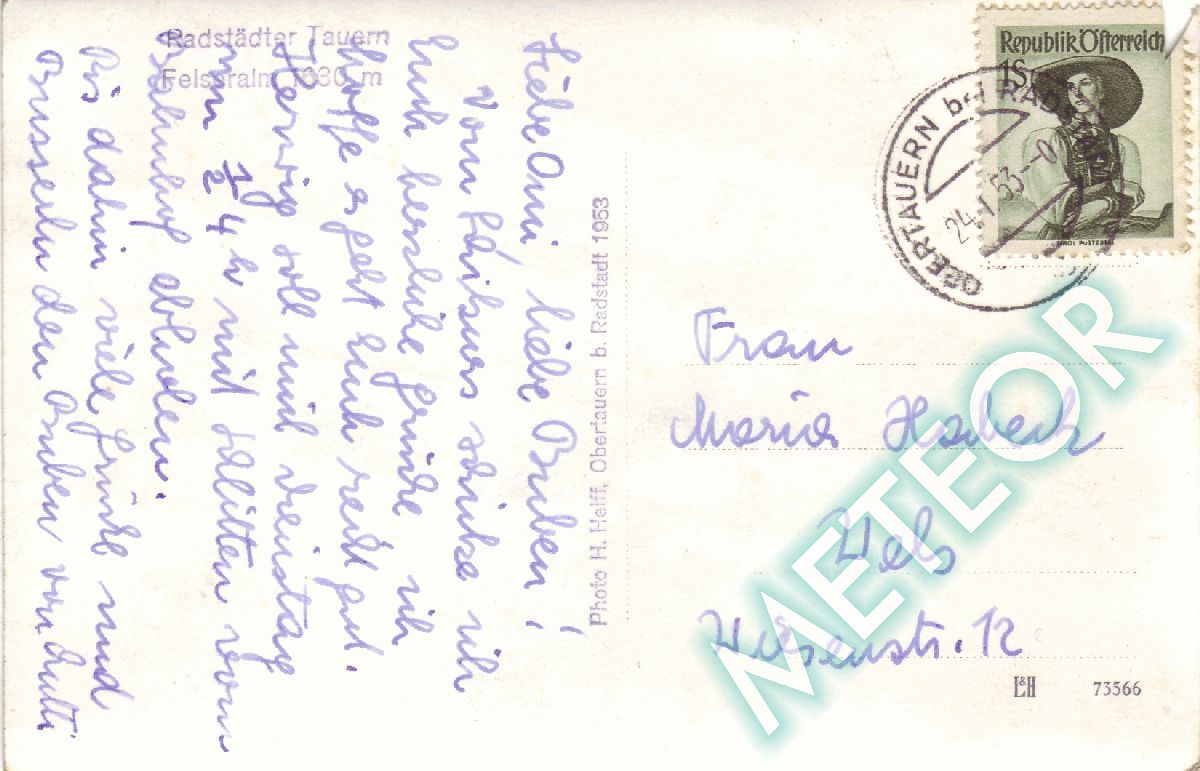 Radstädter Tauern
Felseralm 1630 m
Liebe Omi, liebe Buben!
Vom Schikurs schicke ich
Euch herzliche Grüße ich
hoffe es geht Euch recht gut.
Herwig soll mich Dienstag
um 1/2 4 h mit Schlitten vom
Bahnhof abholen.
Bis dahin viele Grüße und
Busserln den Buben von Mutti
Photo H. Helff, Obertauern b. Radstadt 1953
Republik Österreich
1S
TIROL PUSTERTAL
OBERTAUERN bei RADSTADT
24.1.53
Frau
Maria
Wels
12
L&H 73566
METEOR